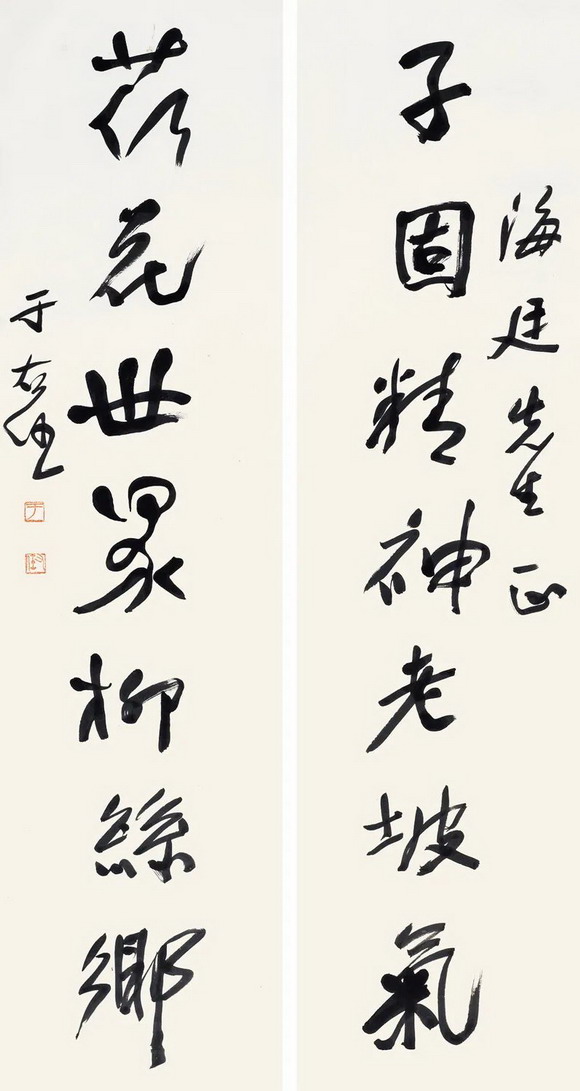 海廷先生正
子固精神老坡氣
荷花世界柳絲鄉
于右任